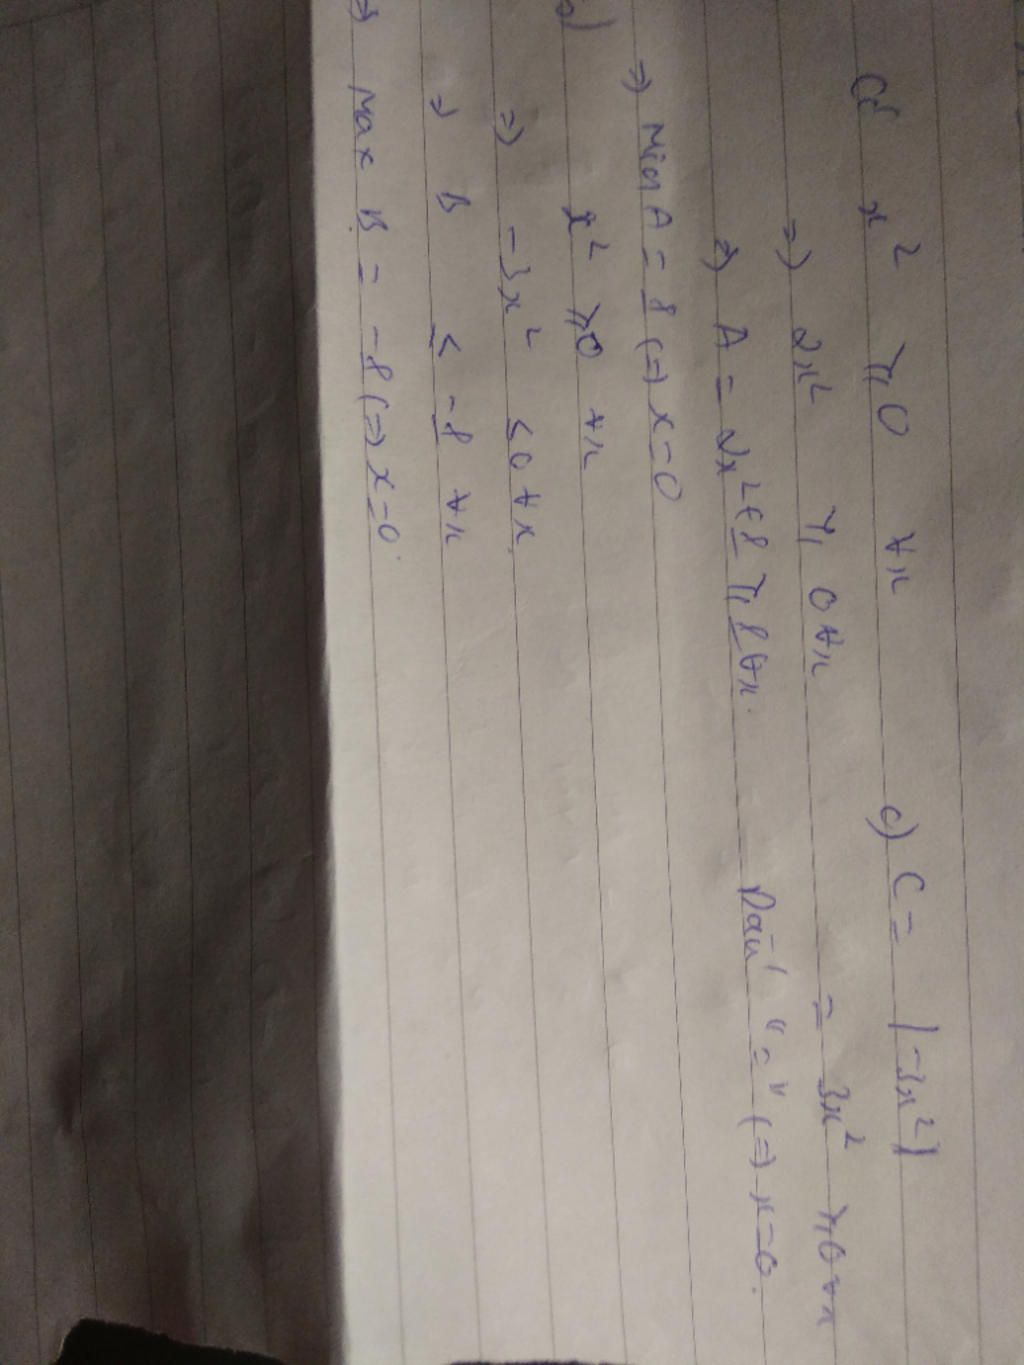 a) x² ≥ 0 ∀x
=> 2x² ≥ 0 ∀x
=> A = 2x² + 8 ≥ 8 ∀x.
=> Min A = 8 (=> x = 0
b) x² ≥ 0 ∀x
=> -3x² ≤ 0 ∀x.
=> B ≤ -8 ∀x
=> Max B = -8 (=> x = 0.
c) C = |-3x²|
= 3x² ≥ 0 ∀x
Dấu "=" (=> x = 0.